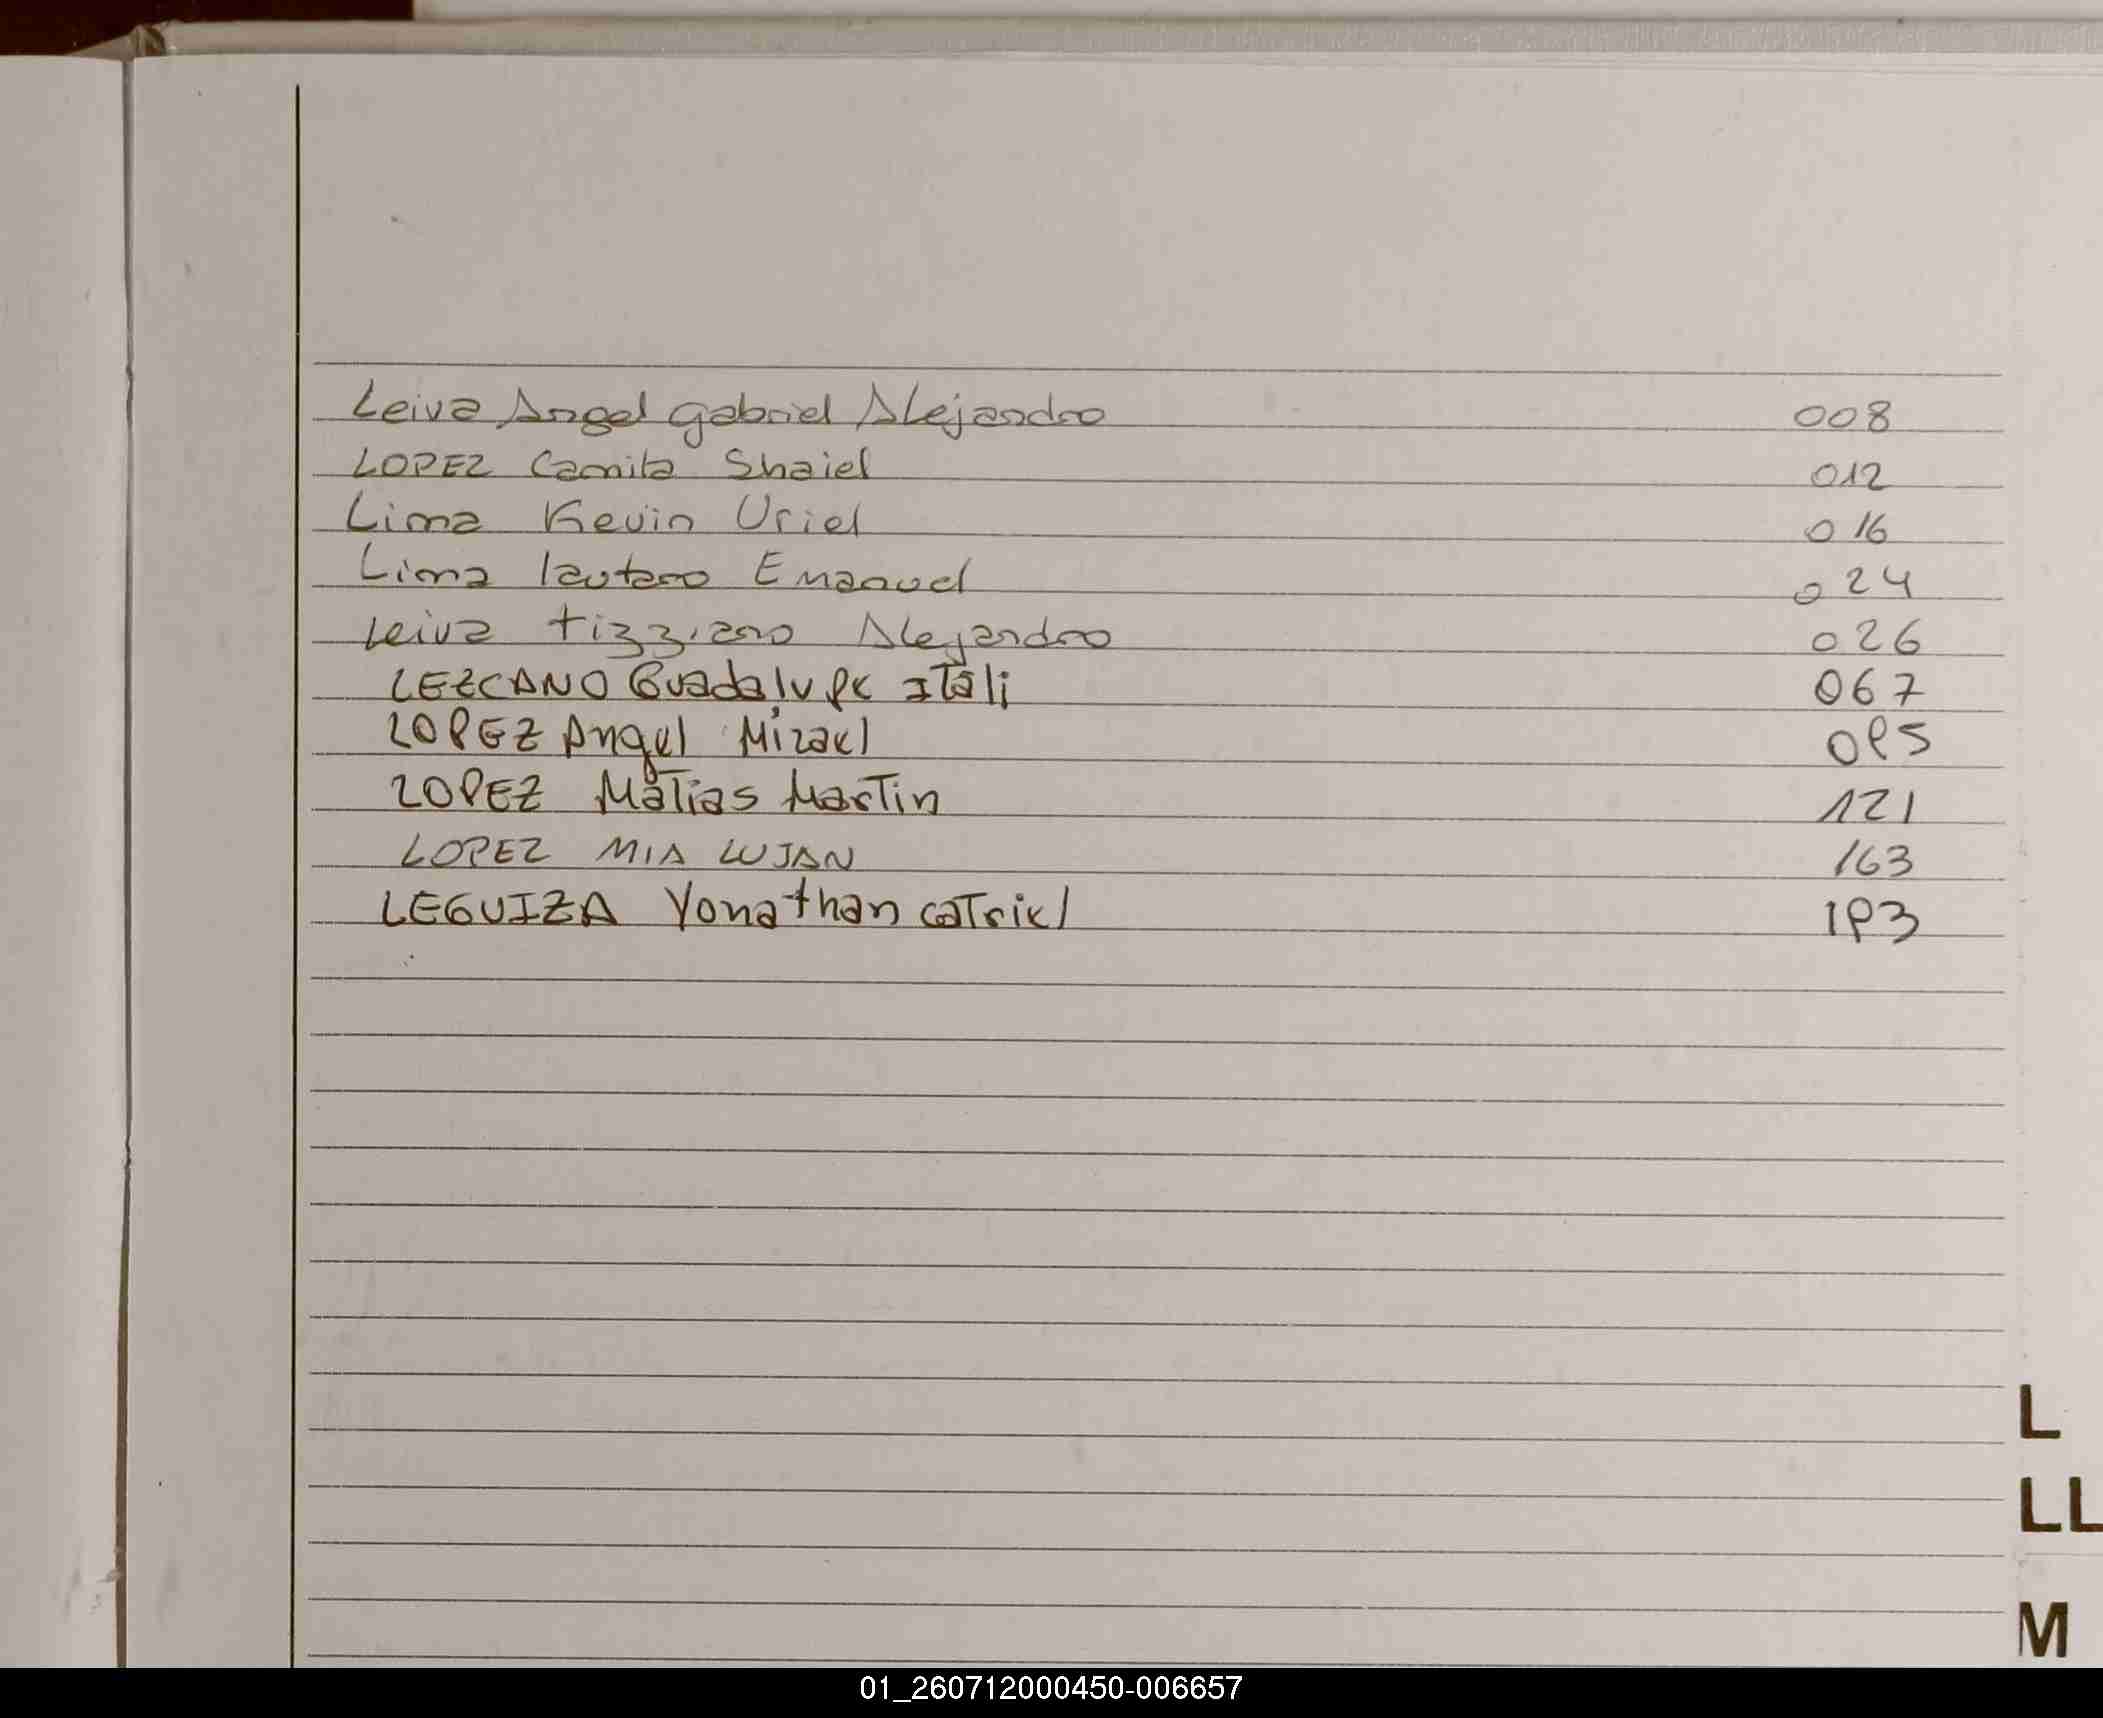 Leiva Angel Gabriel Alejandro 008
LOPEZ Camila Shaiel 012
Lima Kevin Uriel 016
Lima lautaro Emanuel 024
Leiva tizziano Alejandro 026
LEZCANO Guadalupe Itali 067
LOPEZ Angel Mizael 095
LOPEZ Matias Martin 121
LOPEZ MIA LUJAN 163
LEGUIZA Yonathan catriel 193
L
LL
M
01_260712000450-006657